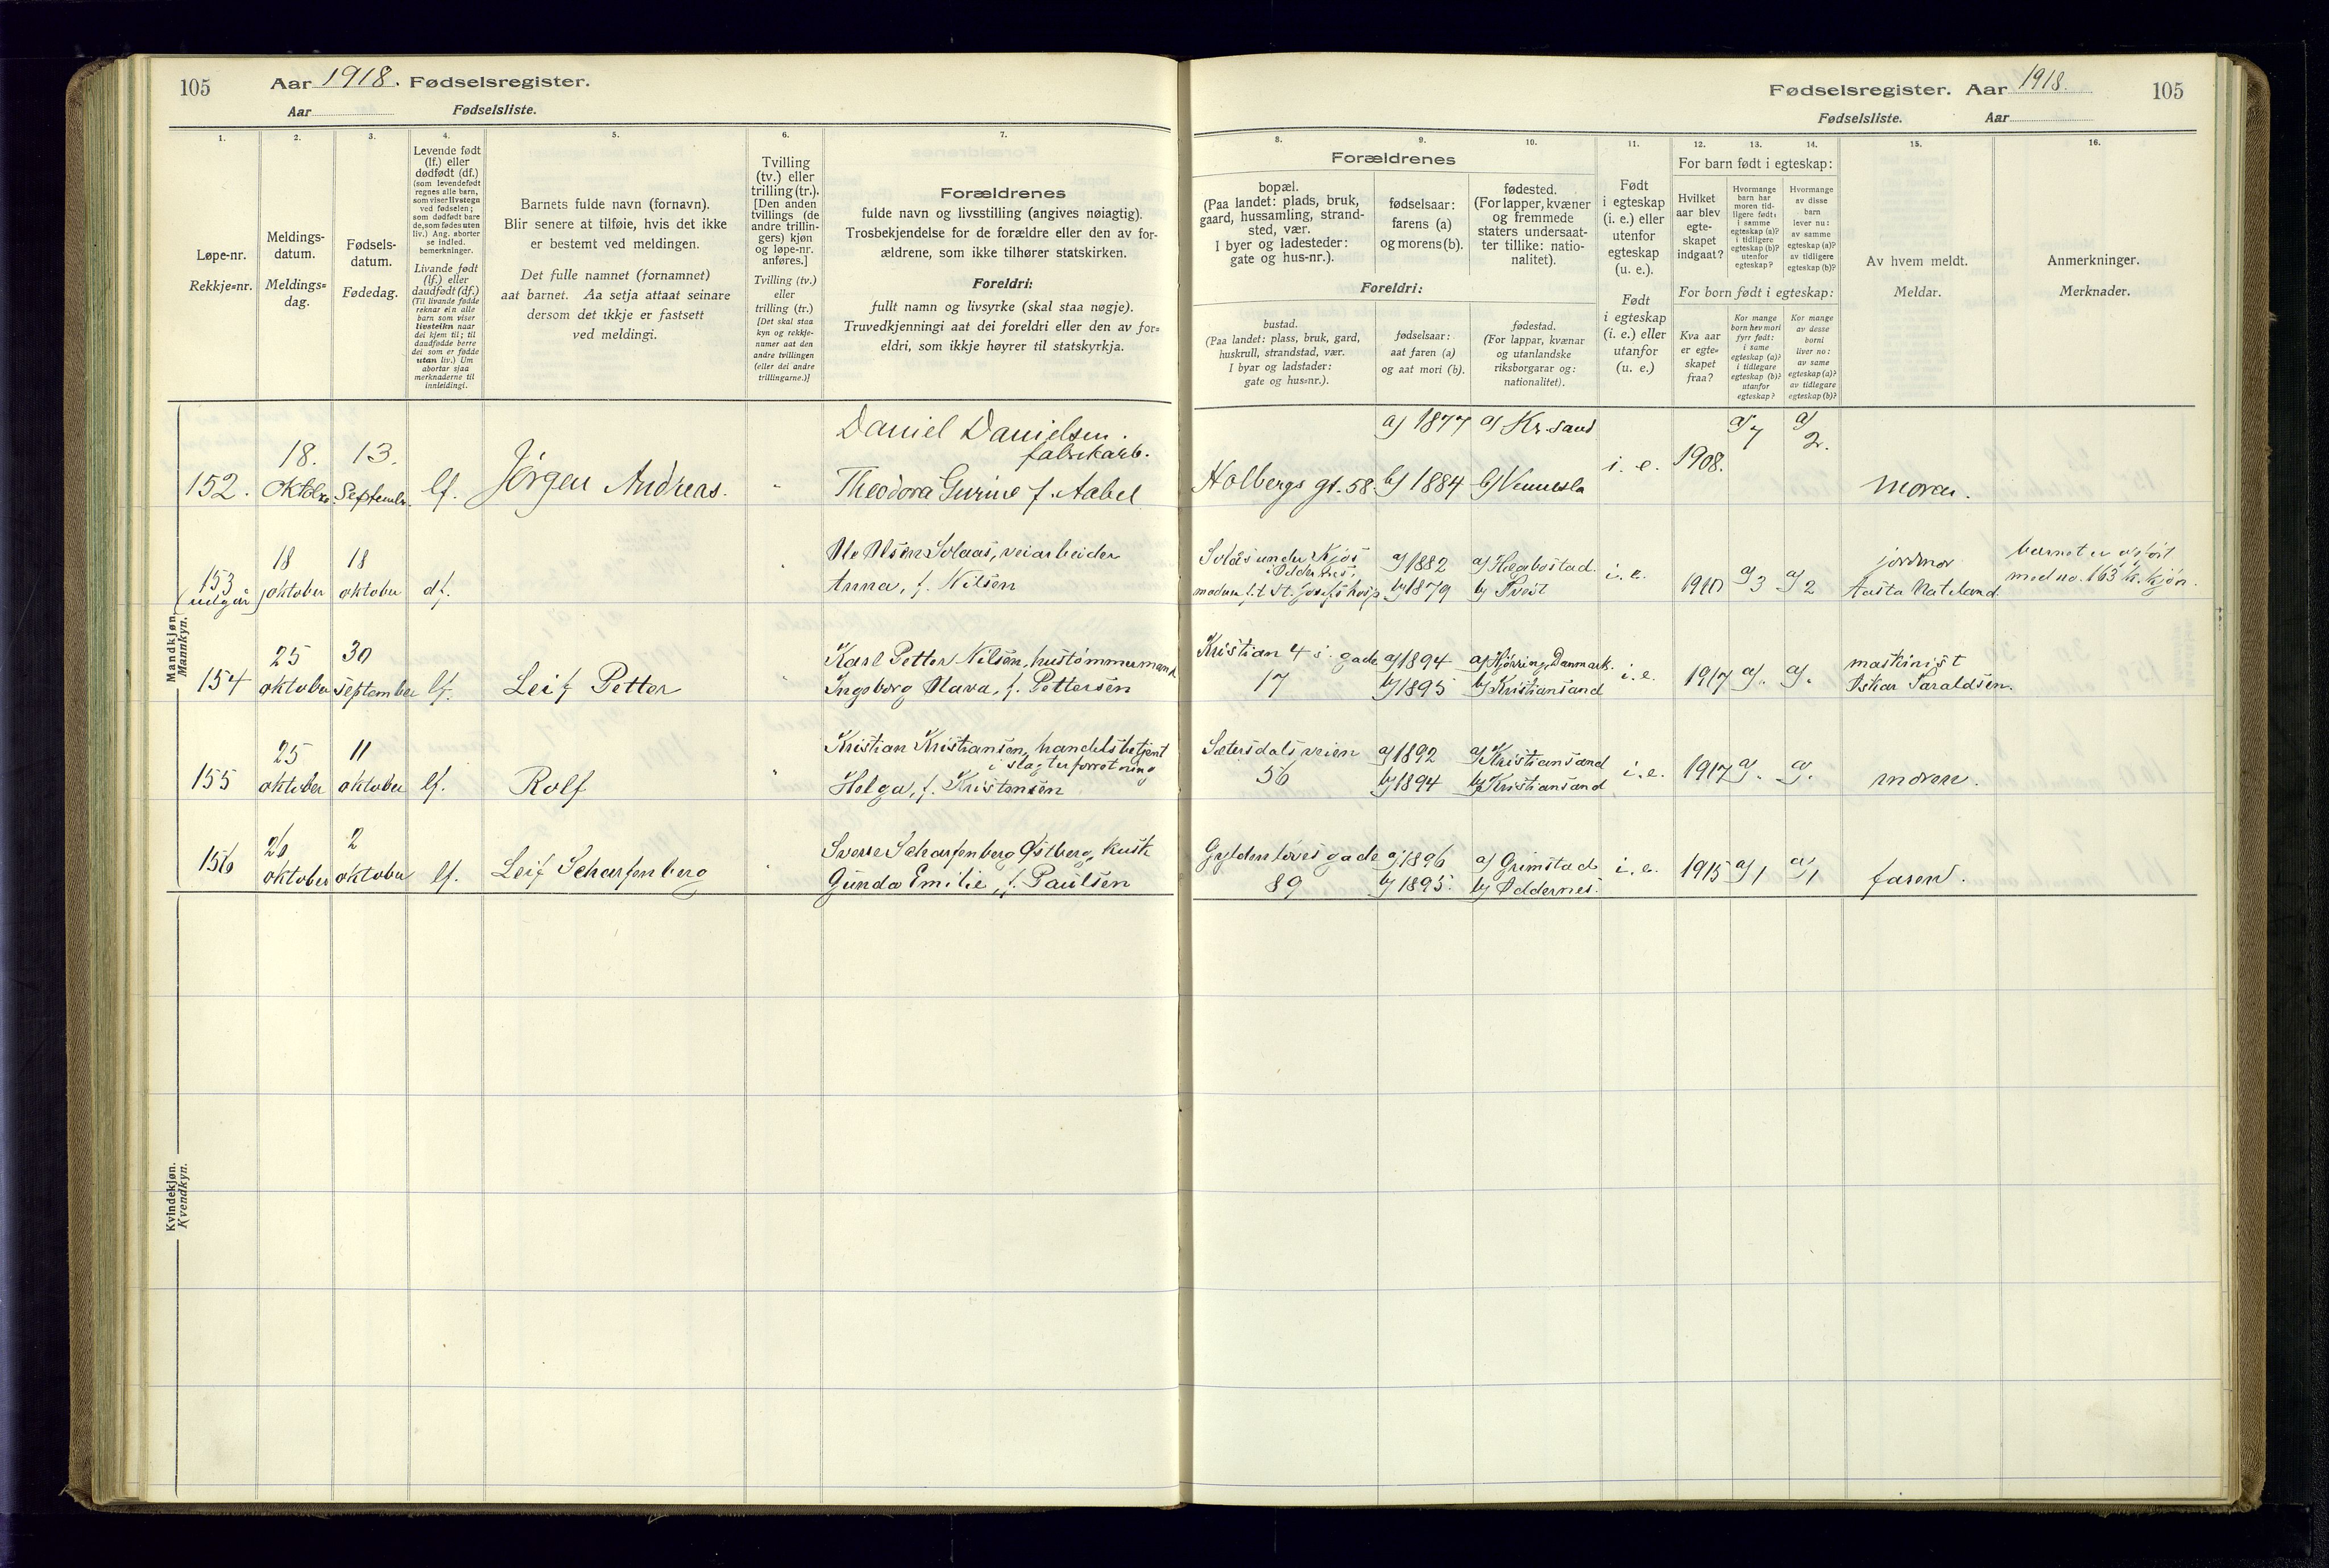 105
Aar 1918. Fødselsregister.
Aar Fødselsliste.
1. 2. 3. 4. 5. 6. 7.
Løpe-nr.
Rekkje=nr.
Meldings-
datum.
Meldings=
dag.
Fødsels-
datum.
Fødedag.
Levende født
(lf.) eller
dødfødt (df.)
(som levendefødt
regnes alle barn,
som viser livstegn
ved fødselen;
som dødfødt bare
de, som fødes uten
liv.) Ang. aborter
se indled.
bemerkninger.
Livande født
(lf.) eller
daudfødt (df.)
(Til livande fødde
reknar ein alle
barn som viser
livsteikn naar
dei kjem til; til
daudfødde berre
dei som er fødde
utan liv.) Um
abortar sjaa
merknaderne til
innleidingi.
Barnets fulde navn (fornavn).
Blir senere at tilføie, hvis det ikke
er bestemt ved meldingen.
Det fulle namnet (fornamnet)
aat barnet. Aa setja attaat seinare
dersom det ikkje er fastsett
ved meldingi.
Tvilling
(tv.) eller
trilling (tr.).
[Den anden
tvillings (de
andre trillin-
gers) kjøn
og løpe-nr.
anføres.]
Tvilling (tv.)
eller
trilling (tr.)
[Det skal staa
kyn og rekkje-
numer aat den
andre tvillingen
(eller dei andre
trillingarne.)]
Forældrenes
fulde navn og livsstilling (angives nøiagtig).
Trosbekjendelse for de forældre eller den av for-
ældrene, som ikke tilhører statskirken.
Foreldri:
fullt namn og livsyrke (skal staa nøgje).
Truvedkjenningi aat dei foreldri eller den av for=
eldri, som ikkje høyrer til statskyrkja.
Mandkjøn.
Mannkyn.
152. 18. Oktobr. 13. Septembr. lf. Jörgen Andreas. "
Daniel Danielsen.
fabrikarb.
Theodora Gurine f. Aabel
153 (udgår) 18 oktober 18 oktober df. "
Ole Olsen Solaas, veiarbeider
Anna, f. Nilsen
154 25 oktober 30 september lf. Leif Petter "
Karl Petter Nilsen, hustømmermand
Ingeborg Olava, f. Pettersen
155 25 oktober 11 oktober lf. Rolf "
Kristian Kristiansen, handelsbetjent
i slagterforretning
Helga, f. Kristensen
156 26 oktober 2 oktober lf. Leif Scharfenberg "
Sverre Scharfenberg Østberg, kusk
Gunda Emilie, f. Paulsen
Kvindekjøn.
Kvendkyn.
Fødselsregister. Aar 1918. 105
Fødselsliste. Aar
8. 9. 10. 11. 12. 13. 14. 15. 16.
Forældrenes
bopæl.
(Paa landet: plads, bruk,
gaard, hussamling, strand-
sted, vær.
I byer og ladesteder:
gate og hus-nr.).
fødselsaar:
farens (a)
og morens (b).
fødested.
(For lapper, kvæner
og fremmede
staters undersaat-
ter tillike: natio-
nalitet).
Foreldri:
bustad.
(Paa landet: plass, bruk, gard,
huskrull, strandstad, vær.
I byar og ladstader:
gate og hus=nr.).
fødselsaar:
aat faren (a)
og aat mori (b).
fødestad.
(For lappar, kvænar
og utanlandske
riksborgarar og:
nationalitet).
Født
i egteskap
(i. e.) eller
utenfor
egteskap
(u. e.).
Født
i egteskap
(i. e.) eller
utanfor
(u. e.)
For barn født i egteskap:
Hvilket
aar blev
egte-
skapet
indgaat?
Hvormange
barn har
moren tid-
ligere født:
i samme
egteskap (a)?
i tidligere
egteskap (b)?
utenfor
egteskap?
Hvormange
av disse
barn
lever nu:
av samme
egteskap (a)?
av tidligere
egteskap (b)?
For born født i egteskap:
Kva aar
er egte=
skapet
fraa?
Kor mange
born hev mori
fyrr født:
i same
egteskap (a)?
i tidlegare
egteskap (b)?
utanfor
egteskap?
Kor mange
av desse
borni
liver no:
av same
egteskap (a)?
av tidlegare
egteskap (b)?
Av hvem meldt.
Meldar.
Anmerkninger.
Merknader.
a) 1877 a) Kr.sand a) 7 a) 2.
Holbergs gt. 58. b) 1884 b) Vennesla i. e. 1908. moren.
Solås under Kjos
i Oddernes,
moderen f.t. St. Josefs hosp.
a) 1882 b) 1879 a) Hægebostad. b) Tveit i. e. 1910 a) 3 a) 2
jordmor
Aasta Nateland
barnet er opført
med no. 163 k. kjøn.
Kristian 4 s. gade
17
a) 1894 b) 1895 a) Hjörring, Danmark. b) Kristiansand i. e. 1917 a). a).
maskinist
Oskar Taraldsen.
Sætersdalsveien
56
a) 1892 b) 1894 a) Kristiansand b) Kristiansand i. e. 1917 a). a). moren.
Gyldenløves gade
89
a) 1896 b) 1895. a) Grimstad b) Oddernes. i. e. 1915 a) 1 a) 1 faren.